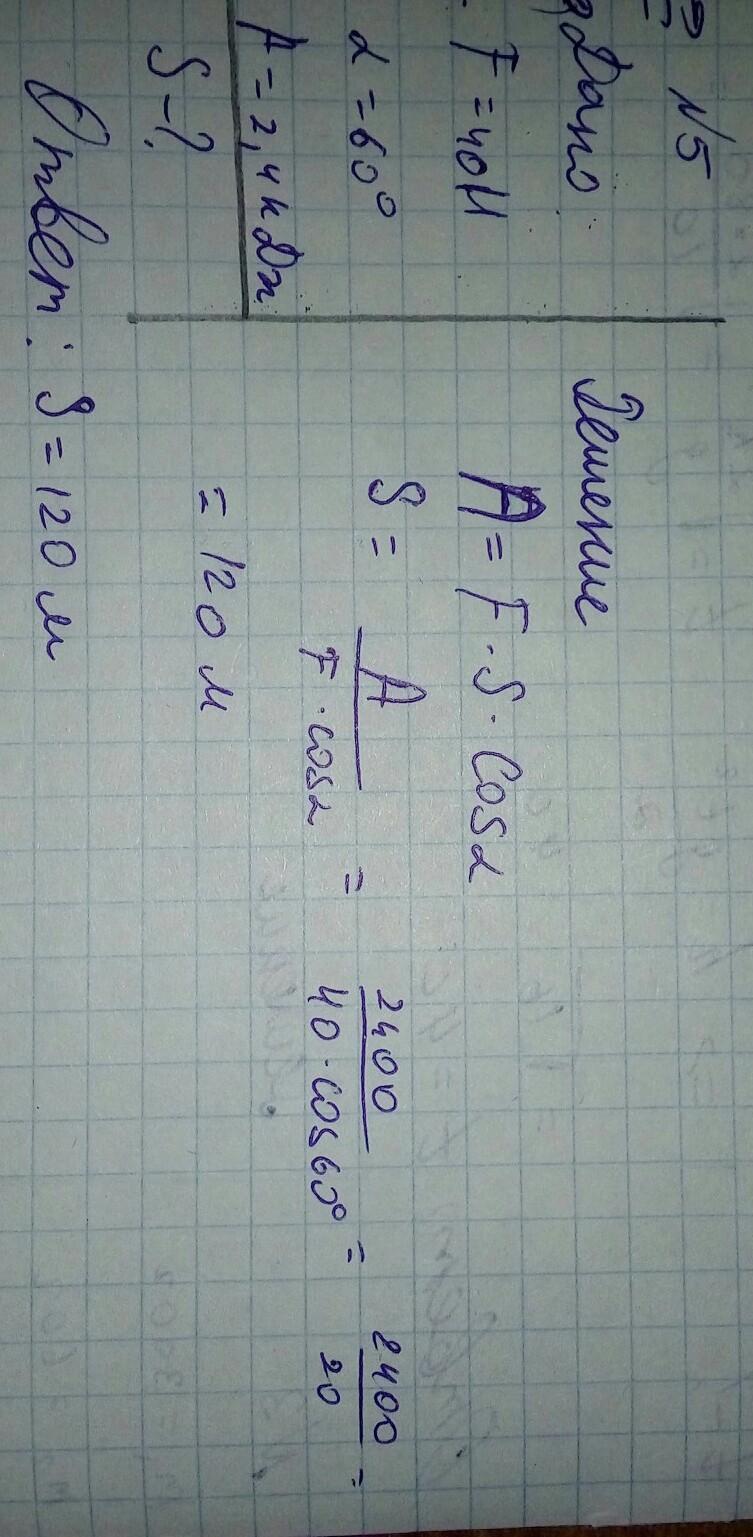 №5
Дано:
F = 40 Н
α = 60°
A = 2,4 кДж
S - ?
Решение
A = F · S · Cos α
S = A / F · cos α = 2400 / 40 · cos 60° = 2400 / 20 =
= 120 м
Ответ: S = 120 м